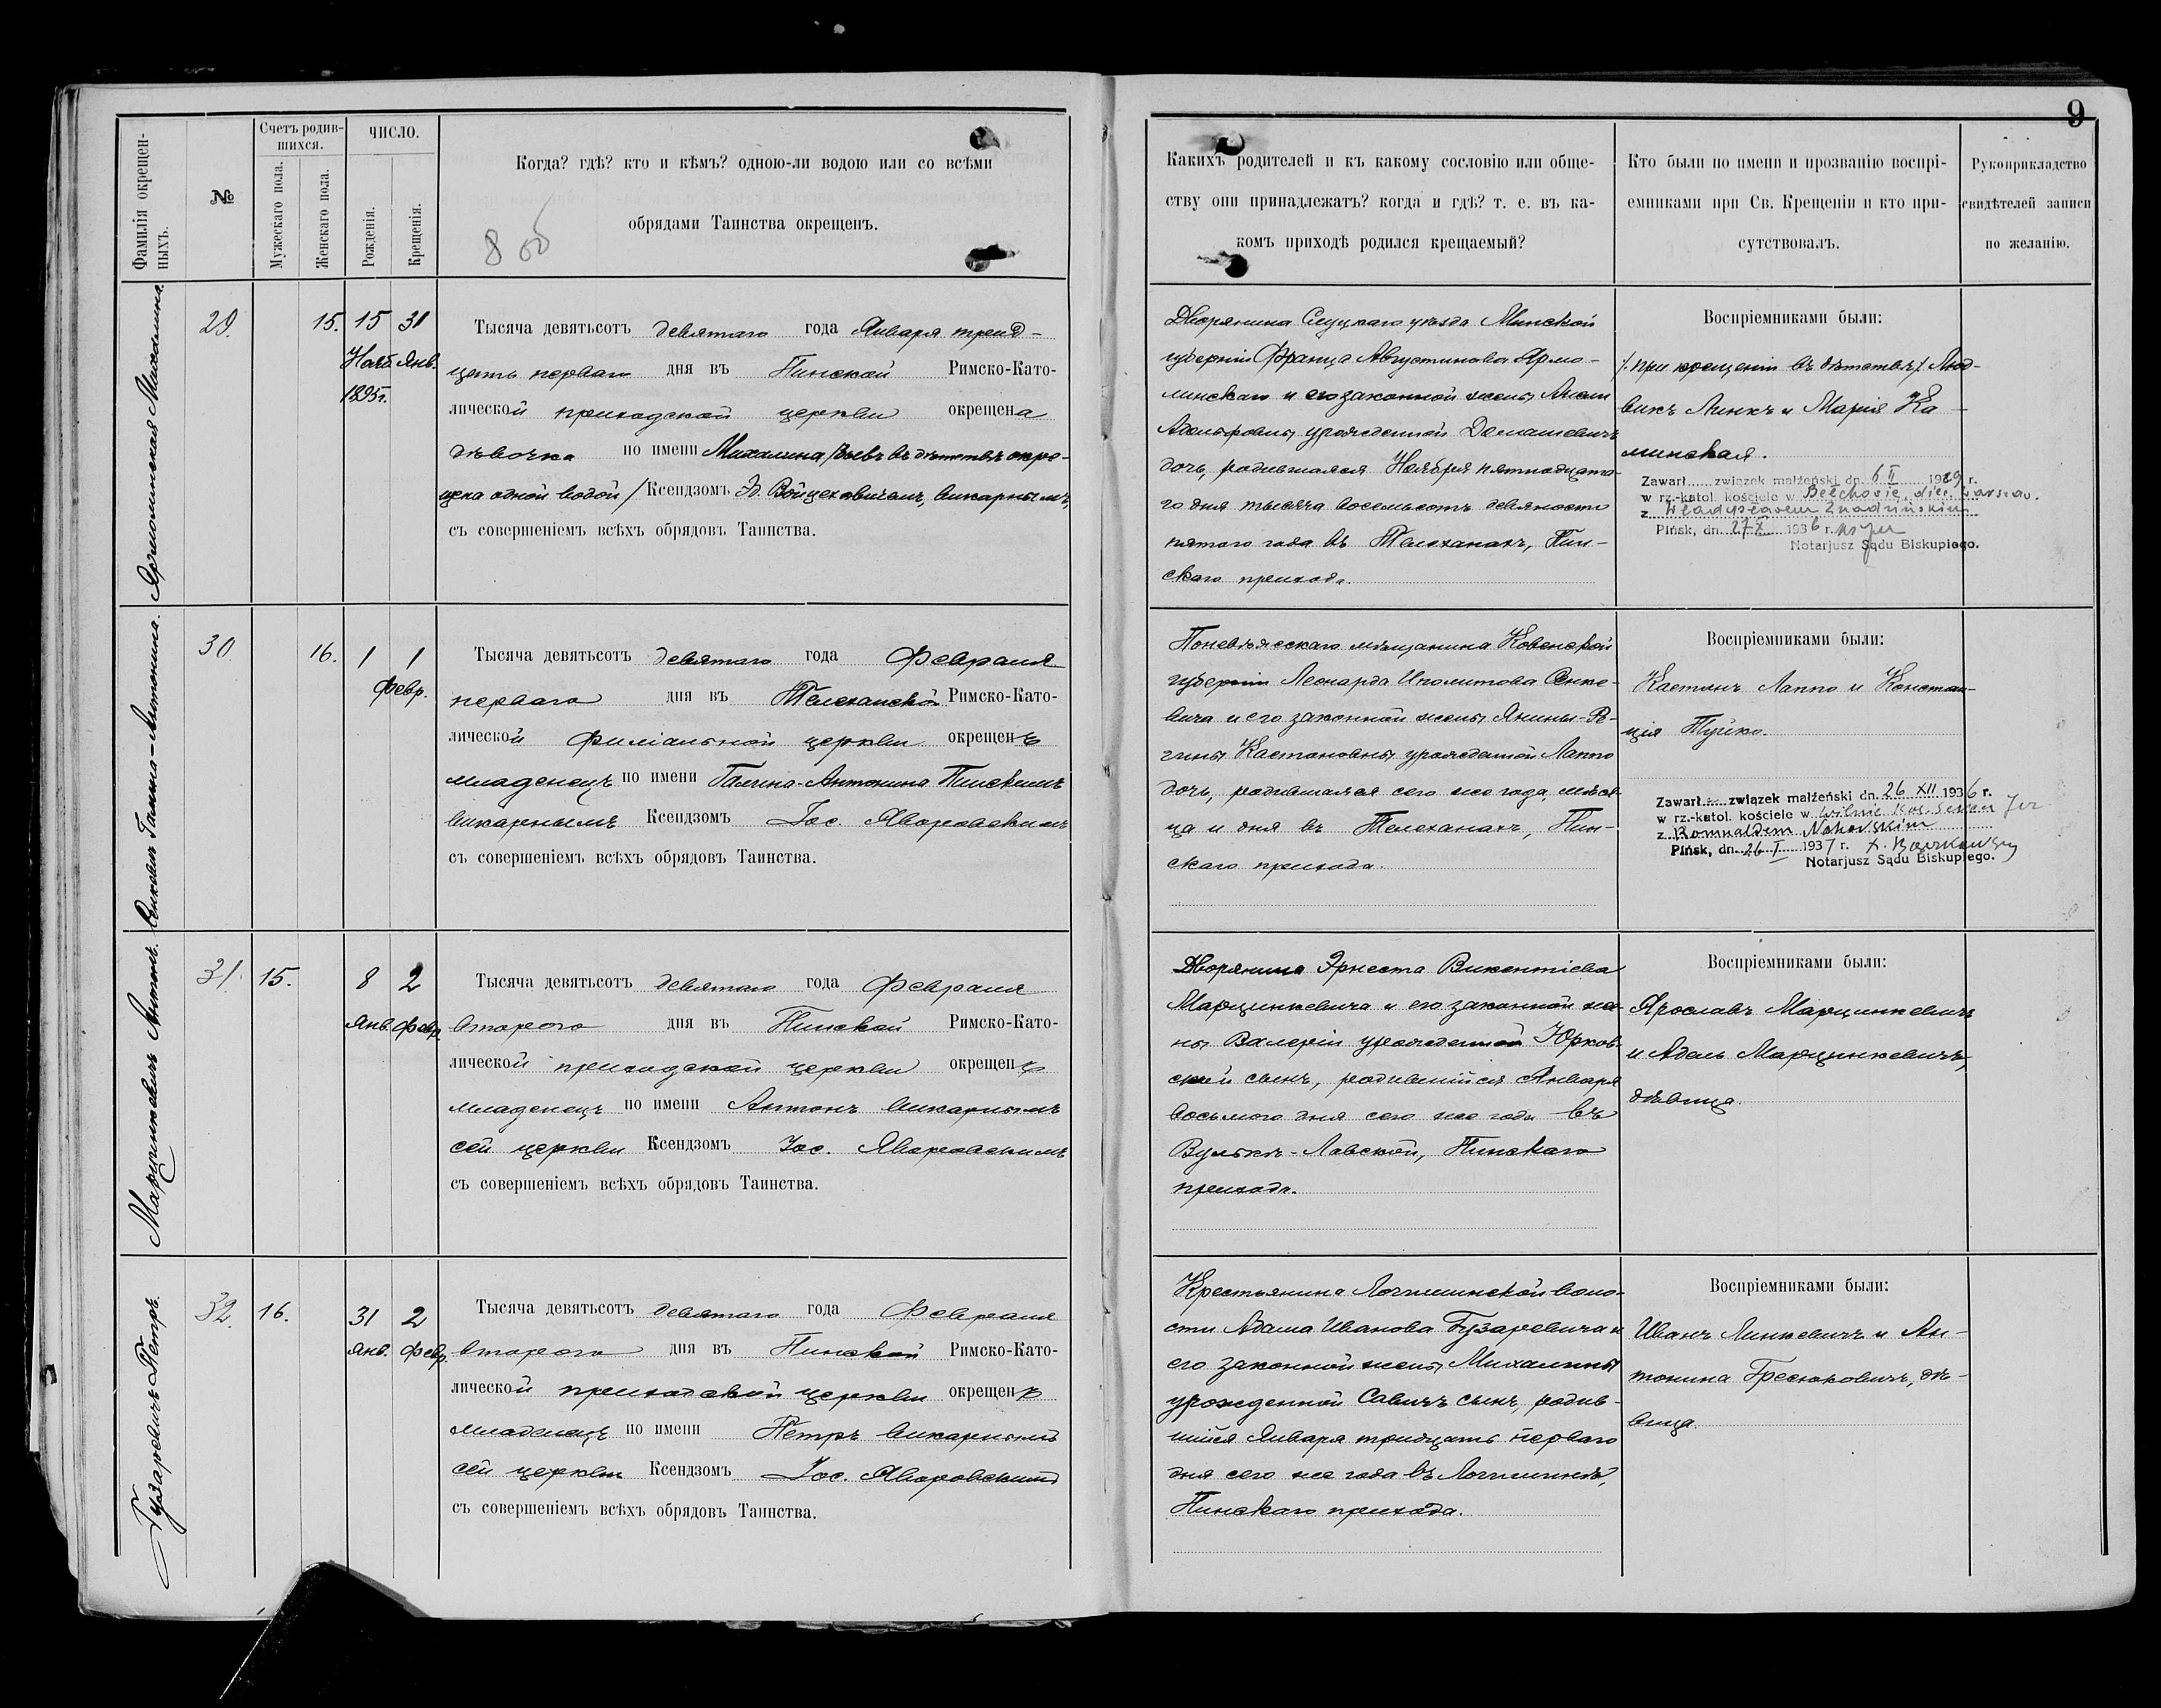 9
Фамилія окрещен-
ныхъ.
№
Счетъ родив-
шихся.
Мужескаго пола.
Женскаго пола.
ЧИСЛО.
Рожденія.
Крещенія.
Когда? гдѣ? кто и кѣмъ? одною-ли водою или со всѣми
обрядами Таинства окрещенъ.
8 об
Какихъ родителей и къ какому сословію или обще-
ству они принадлежатъ? когда и гдѣ? т. е. въ ка-
комъ приходѣ родился крещаемый?
Кто были по имени и прозванію воспрі-
емниками при Св. Крещеніи и кто при-
сутствовалъ.
Рукоприкладство
свидѣтелей записи
по желанію.
Ярмолинская Михалина.
29.
15.
15 31
Нояб. Янв.
1895 г.
Тысяча девятьсотъ девятаго года Января трид-
цать перваго дня въ Пинской Римско-Като-
лической приходской церкви окрещена
дѣвочка по имени Михалина /бывъ въ дѣтствѣ окре-
щена одной водой/ Ксендзомъ Эд. Войцеховичемъ, викарнымъ,
съ совершеніемъ всѣхъ обрядовъ Таинства.
Дворянина Слуцкаго уѣзда Минской
губерніи Франца Августинова Ярмо-
линскаго и его законной жены
Адольфовны урожденной Домашевичъ
дочь, родившаяся Ноября пятнадцата-
го дня тысяча восемьсотъ девяносто
пятаго года въ Телеханахъ, Пин-
скаго прихода.
Воспріемниками были:
/при крещеніи въ дѣтствѣ/ Люд-
викъ Линкъ и Марія Ка-
минская.
Zawarł związek małżeński dn. 6 II 1929 r.
w rz.-katol. kościele w Bełchowie, diec. warszaw.
z Władysławem
Pińsk, dn. 27 X 1936 r.
Notarjusz Sądu Biskupiego.
Сенкевичъ Галина-Антонина.
30
16.
1 1
Февр.
Тысяча девятьсотъ девятаго года Февраля
перваго дня въ Телеханской Римско-Като-
лической филіальной церкви окрещенъ
младенецъ по имени Галина-Антонина Пинскимъ
викарнымъ Ксендзомъ Іос. Яворовскимъ
съ совершеніемъ всѣхъ обрядовъ Таинства.
Поневѣжескаго мѣщанина Ковенской
губерніи Леонарда Ипполитова Сенке-
вича и его законной жены Янины-Ре-
гины Каетановны урожденной Лаппо
дочь, родившаяся сего же года, мѣся-
ца и дня въ Телеханахъ, Пин-
скаго прихода.
Воспріемниками были:
Каетанъ Лаппо и Констан-
ція Туйко.
Zawarł związek małżeński dn. 26 XII 1936 r.
w rz.-katol. kościele w Wilnie
z Romualdem
Pińsk, dn. 26 I 1937 r.
Notarjusz Sądu Biskupiego.
Марцинкевичъ Антонъ.
31.
15.
8 2
Янв. Февр.
Тысяча девятьсотъ девятаго года Февраля
второго дня въ Пинской Римско-Като-
лической приходской церкви окрещенъ
младенецъ по имени Антонъ викарнымъ
сей церкви Ксендзомъ Іос. Яворовскимъ
съ совершеніемъ всѣхъ обрядовъ Таинства.
Дворянина Эрнеста Викентіева
Марцинкевича и его законной же-
ны Валеріи урожденной Юрков-
ской сынъ, родившійся Января
восьмого дня сего же года въ
Вулькѣ-Лавской, Пинскаго
прихода.
Воспріемниками были:
Ярославъ Марцинкевичъ
и Адель Марцинкевичъ,
дѣвица.
Гузаревичъ Петръ.
32.
16.
31 2
Янв. Февр.
Тысяча девятьсотъ девятаго года Февраля
второго дня въ Пинской Римско-Като-
лической приходской церкви окрещенъ
младенецъ по имени Петръ викарнымъ
сей церкви Ксендзомъ Іос. Яворовскимъ
съ совершеніемъ всѣхъ обрядовъ Таинства.
Крестьянина Логишинской воло-
сти Адама Иванова Гузаревича и
его законной жены Михалины
урожденной Савичъ сынъ, родив-
шійся Января тридцать перваго
дня сего же года въ Логишинѣ,
Пинскаго прихода.
Воспріемниками были:
Иванъ Линкевичъ и Ан-
тонина Гресюковичъ, дѣ-
вица.